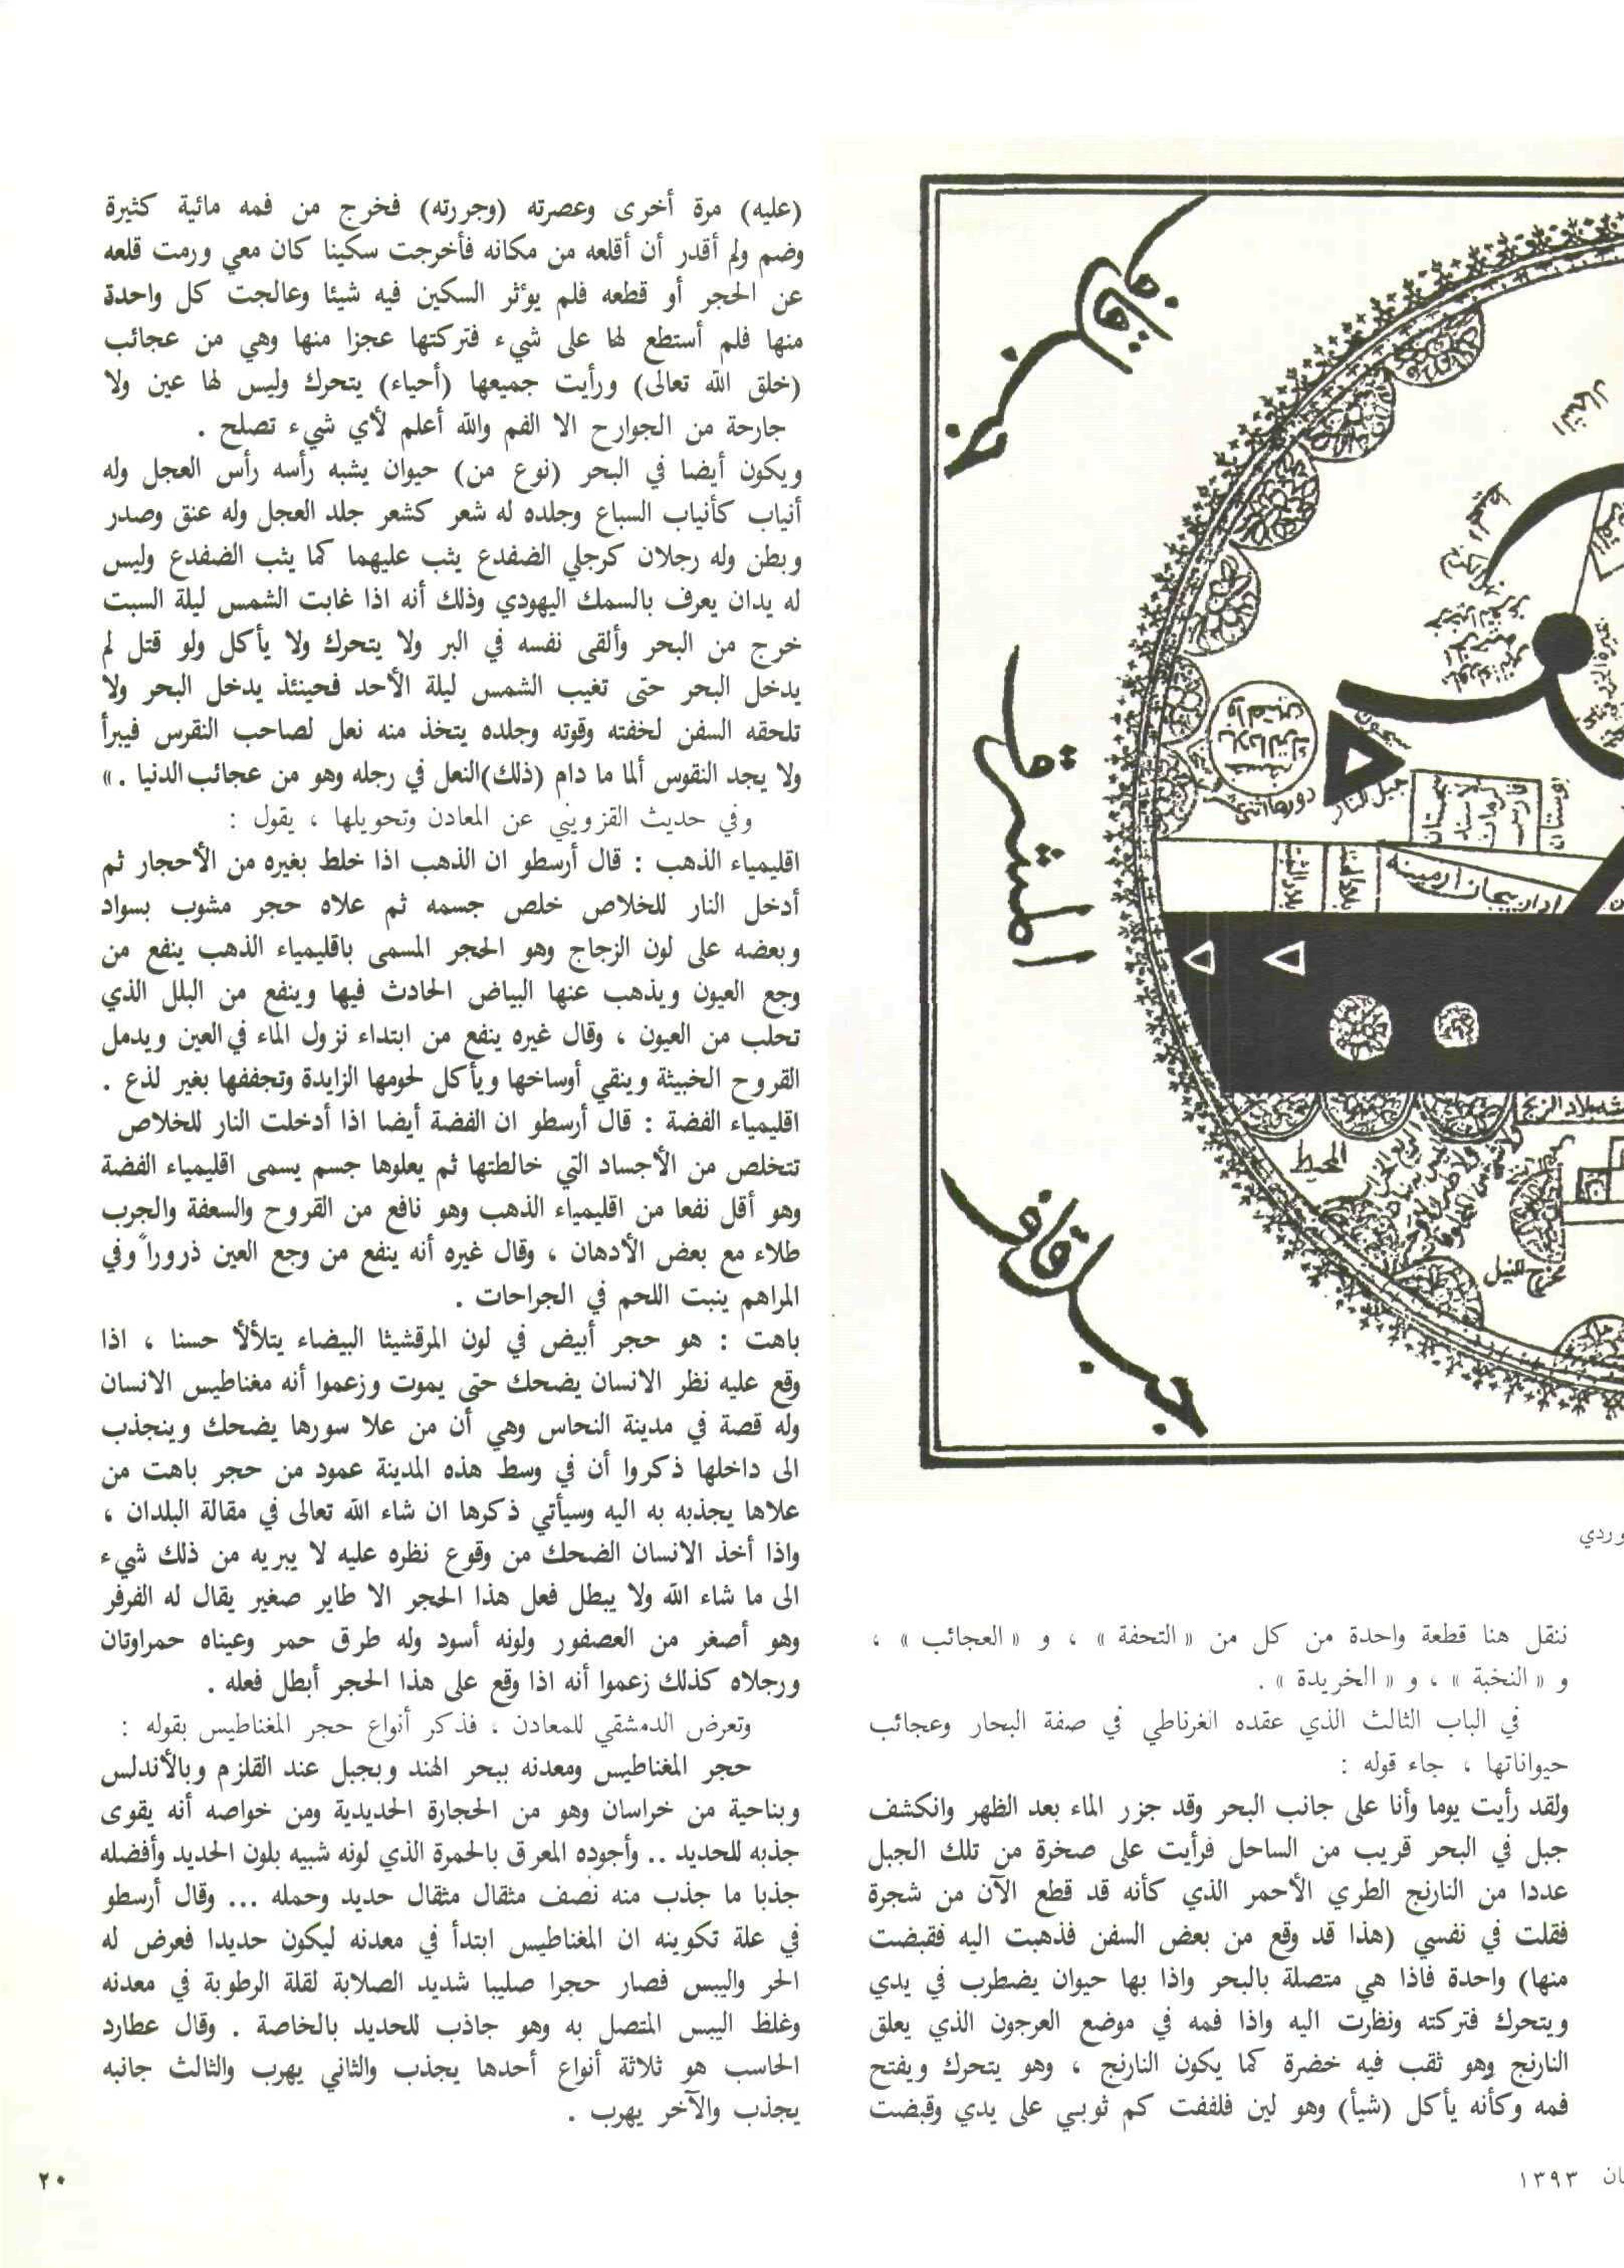 جبل قاف
المشرق
جبل قاف
الشمال
سيحون
جبل النار
سجستان
كرمان
فارس
ادار بيجان ارمينة
بلاد الزنج
المحيط
النيل
وردي
ننقل هنا قطعة واحدة من كل من « التحفة » ، و « العجائب » ،
و « النخبة » ، و « الخريدة » .
في الباب الثالث الذي عقده الغرناطي في صفة البحار وعجائب
حيواناتها ، جاء قوله :
ولقد رأيت يوما وأنا على جانب البحر وقد جزر الماء بعد الظهر وانكشف
جبل في البحر قريب من الساحل فرأيت على صخرة من تلك الجبل
عددا من النارنج الطري الأحمر الذي كأنه قد قطع الآن من شجرة
فقلت في نفسي (هذا قد وقع من بعض السفن فذهبت اليه فقبضت
منها) واحدة فاذا هي متصلة بالبحر واذا بها حيوان يضطرب في يدي
ويتحرك فتركته ونظرت اليه واذا فمه في موضع العرجون الذي يعلق
النارنج وهو ثقب فيه خضرة كما يكون النارنج ، وهو يتحرك ويفتح
فمه وكأنه يأكل (شيأ) وهو لين فلففت كم ثوبي على يدي وقبضت
(عليه) مرة أخرى وعصرته (وجررته) فخرج من فمه مائية كثيرة
وضم ولم أقدر أن أقلعه من مكانه فأخرجت سكينا كان معي ورمت قلعه
عن الحجر أو قطعه فلم يوءثر السكين فيه شيئا وعالجت كل واحدة
منها فلم أستطع لها على شيء فتركتها عجزا منها وهي من عجائب
(خلق الله تعالى) ورأيت جميعها (أحياء) يتحرك وليس لها عين ولا
جارحة من الجوارح الا الفم والله أعلم لأي شيء تصلح .
ويكون أيضا في البحر (نوع من) حيوان يشبه رأسه رأس العجل وله
أنياب كأنياب السباع وجلده له شعر كشعر جلد العجل وله عنق وصدر
وبطن وله رجلان كرجلي الضفدع يثب عليهما كما يثب الضفدع وليس
له يدان يعرف بالسمك اليهودي وذلك أنه اذا غابت الشمس ليلة السبت
خرج من البحر وألقى نفسه في البر ولا يتحرك ولا يأكل ولو قتل لم
يدخل البحر حتى تغيب الشمس ليلة الأحد فحينئذ يدخل البحر ولا
تلحقه السفن لخفته وقوته وجلده يتخذ منه نعل لصاحب النقرس فيبرأ
ولا يجد النقوس ألما ما دام (ذلك)النعل في رجله وهو من عجائب الدنيا . »
وفي حديث القزويني عن المعادن وتحويلها ، يقول :
اقليمياء الذهب : قال أرسطو ان الذهب اذا خلط بغيره من الأحجار ثم
أدخل النار للخلاص خلص جسمه ثم علاه حجر مشوب بسواد
وبعضه على لون الزجاج وهو الحجر المسمى باقليمياء الذهب ينفع من
وجع العيون ويذهب عنها البياض الحادث فيها وينفع من البلل الذي
تحلب من العيون ، وقال غيره ينفع من ابتداء نزول الماء في العين ويدمل
القروح الخبيثة وينقي أوساخها ويأكل لحومها الزايدة وتجففها بغير لذع .
اقليمياء الفضة : قال أرسطو ان الفضة أيضا اذا أدخلت النار للخلاص
تتخلص من الأجساد التي خالطتها ثم يعلوها جسم يسمى اقليمياء الفضة
وهو أقل نفعا من اقليمياء الذهب وهو نافع من القروح والسعفة والجرب
طلاء مع بعض الأدهان ، وقال غيره أنه ينفع من وجع العين ذروراً وفي
المراهم ينبت اللحم في الجراحات .
باهت : هو حجر أبيض في لون المرقشيثا البيضاء يتلألأ حسنا ، اذا
وقع عليه نظر الانسان يضحك حتى يموت وزعموا أنه مغناطيس الانسان
وله قصة في مدينة النحاس وهي أن من علا سورها يضحك وينجذب
الى داخلها ذكروا أن في وسط هذه المدينة عمود من حجر باهت من
علاها يجذبه به اليه وسيأتي ذكرها ان شاء الله تعالى في مقالة البلدان ،
واذا أخذ الانسان الضحك من وقوع نظره عليه لا يبريه من ذلك شيء
الى ما شاء الله ولا يبطل فعل هذا الحجر الا طاير صغير يقال له الفرفر
وهو أصغر من العصفور ولونه أسود وله طرق حمر وعيناه حمراوتان
ورجلاه كذلك زعموا أنه اذا وقع على هذا الحجر أبطل فعله .
وتعرض الدمشقي للمعادن ، فذكر أنواع حجر المغناطيس بقوله :
حجر المغناطيس ومعدنه ببحر الهند وبجبل عند القلزم وبالأندلس
وبناحية من خراسان وهو من الحجارة الحديدية ومن خواصه أنه يقوى
جذبه للحديد .. وأجوده المعرق بالحمرة الذي لونه شبيه بلون الحديد وأفضله
جذبا ما جذب منه نصف مثقال مثقال حديد وحمله ... وقال أرسطو
في علة تكوينه ان المغناطيس ابتدأ في معدنه ليكون حديدا فعرض له
الحر واليبس فصار حجرا صليبا شديد الصلابة لقلة الرطوبة في معدنه
وغلظ اليبس المتصل به وهو جاذب للحديد بالخاصة . وقال عطارد
الحاسب هو ثلاثة أنواع أحدها يجذب والثاني يهرب والثالث جانبه
يجذب والآخر يهرب .
ان ١٣٩٣
٢٠